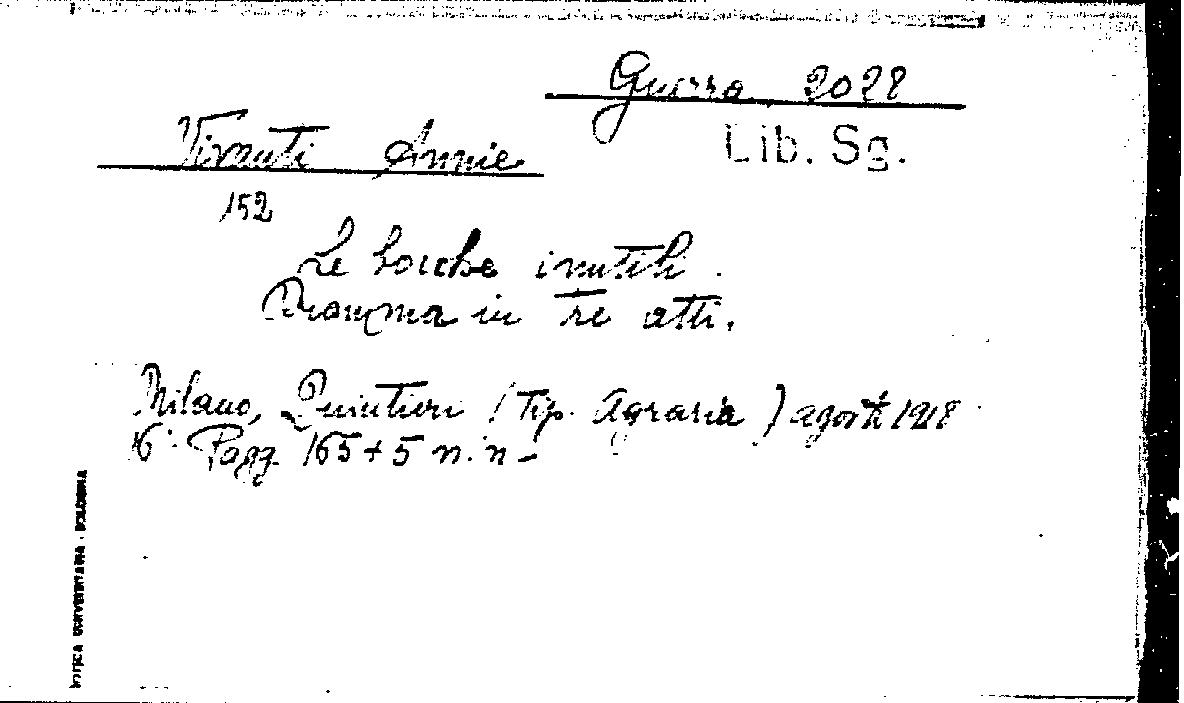 Guerra 2028
Lib. Sg.
Vivanti Annie
152
Le bocche inutili.
Dramma in tre atti.
Milano, Quintieri (Tip. Agraria) agosto 1918
16° Pagg. 165+5 n. n.
BOLOGNA